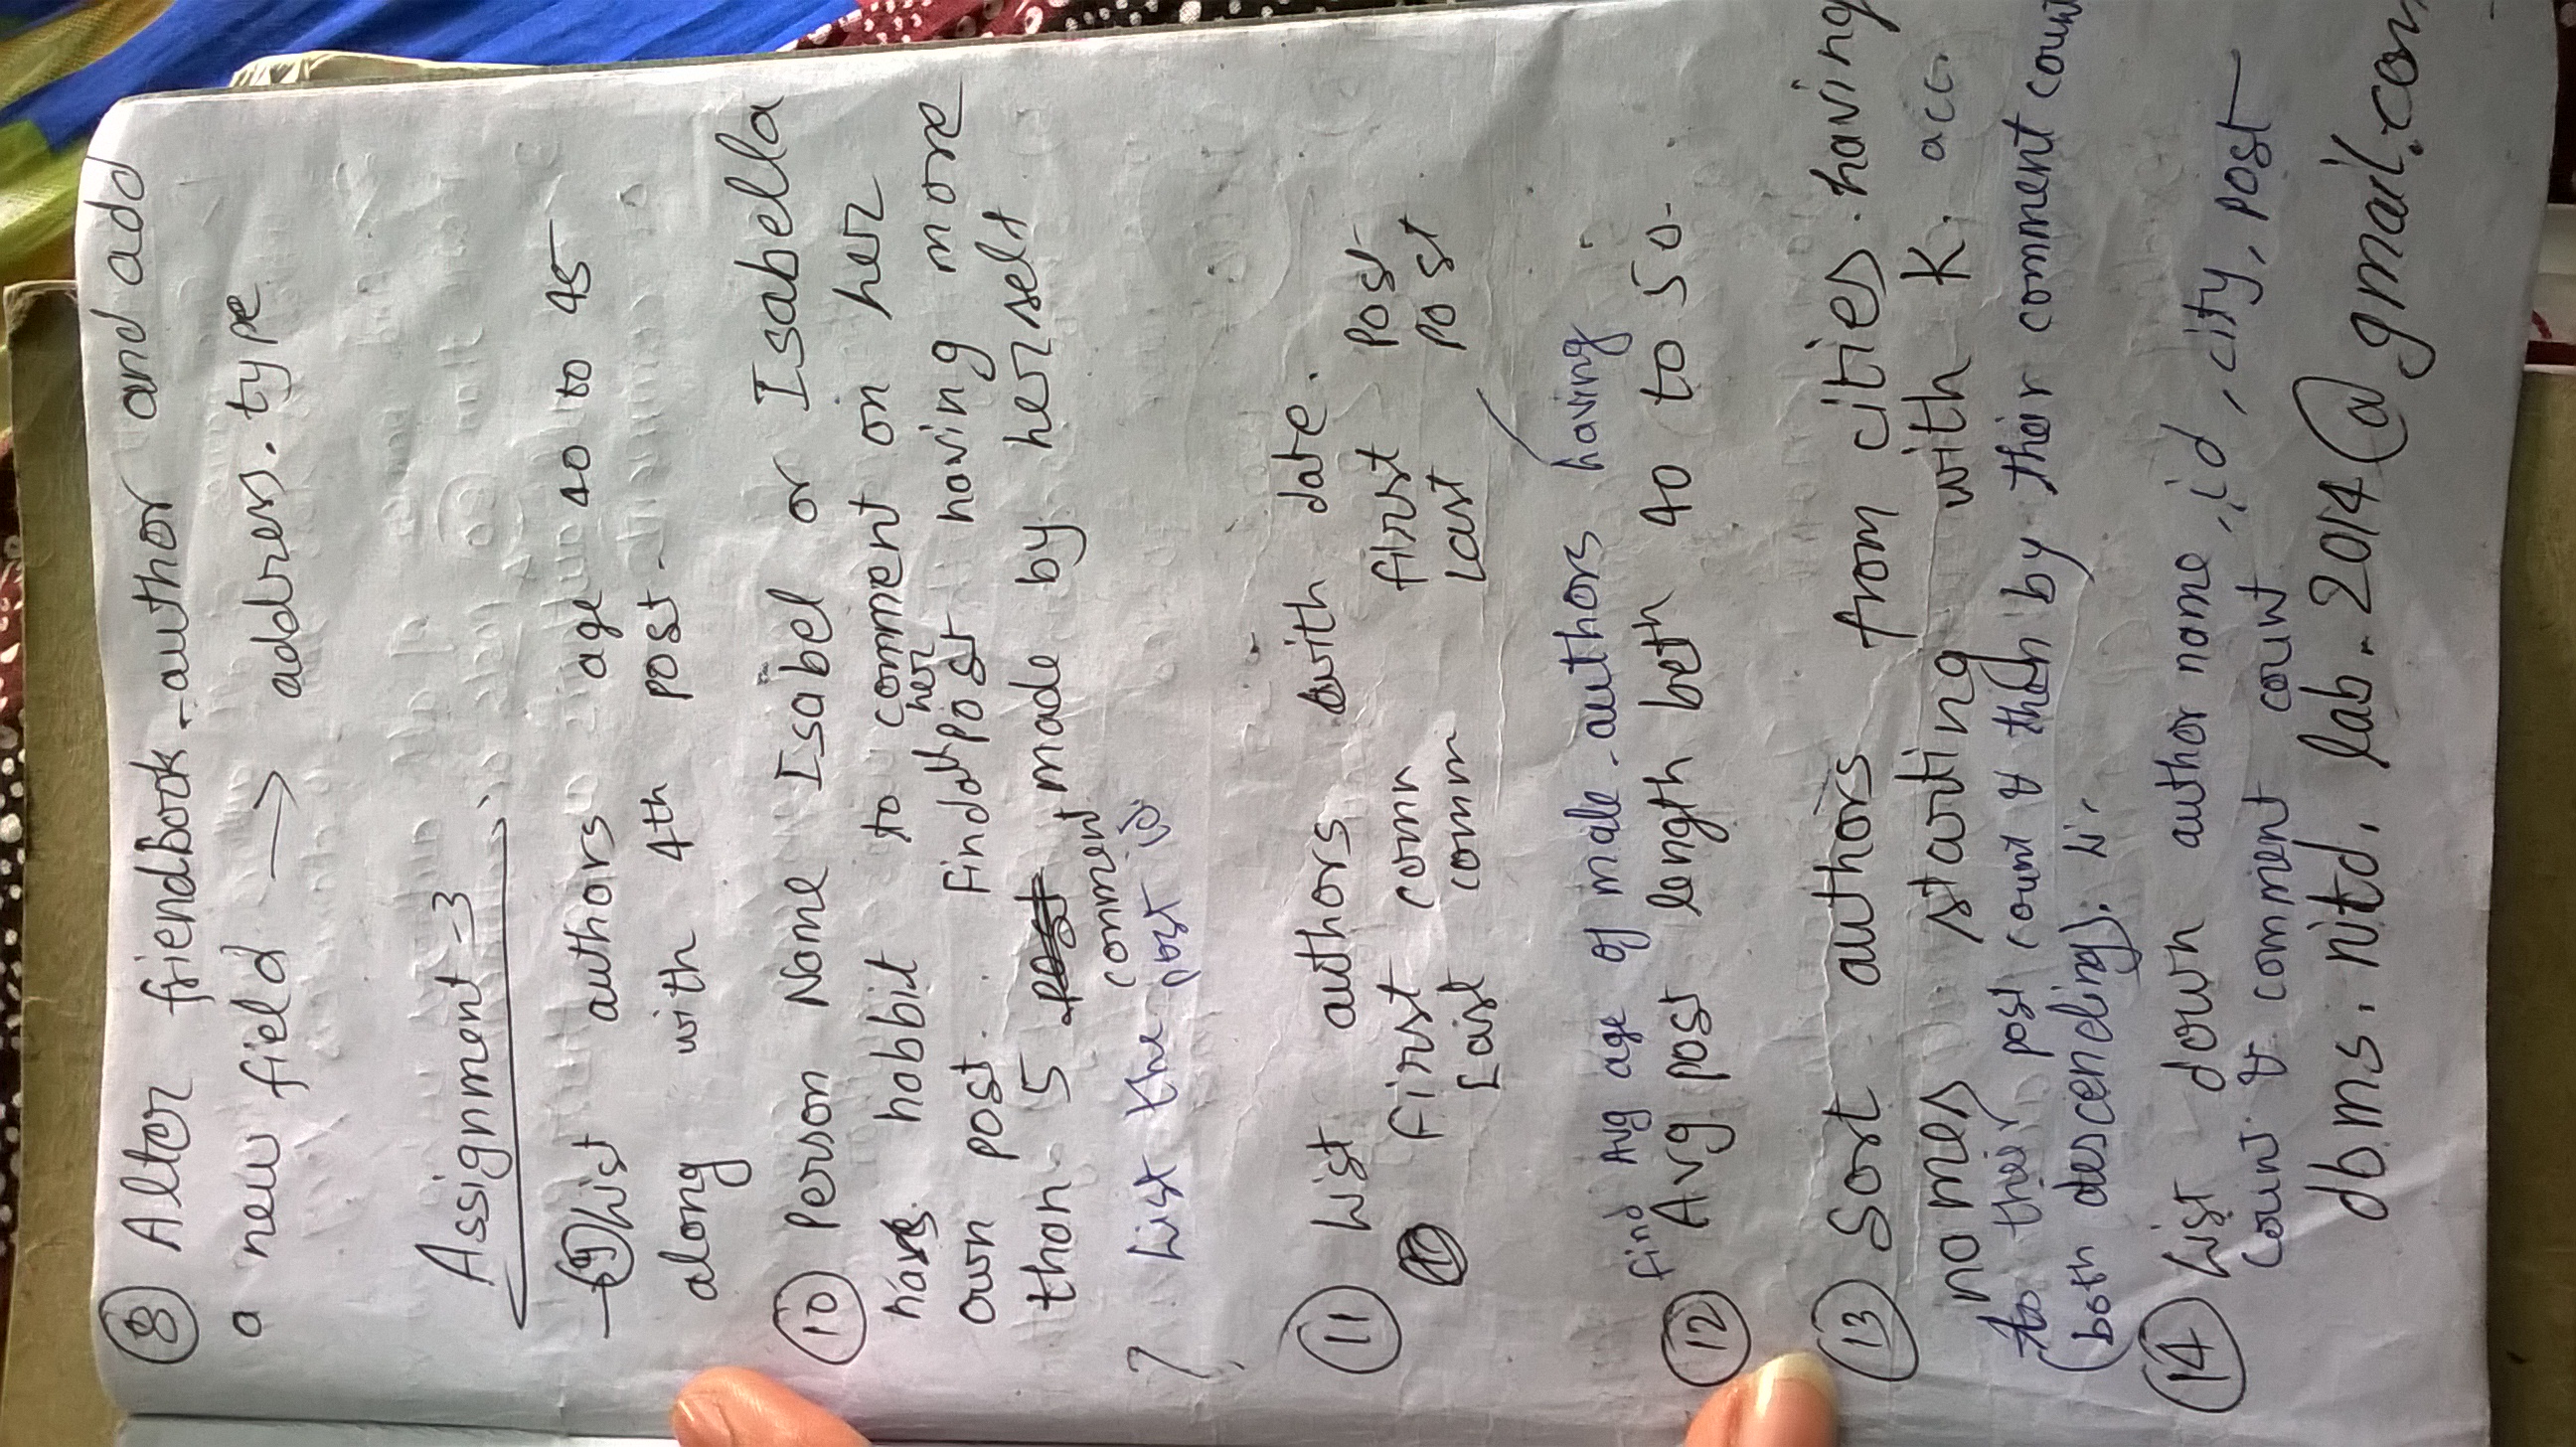 (8) Alter friendbook-author and add
a new field → address.type
Assignment-3
(9) List authors age 40 to 45
along with 4th post.
(10) Person Name Isabel or Isabella
has hobbit to comment on her
own post. Find out her post having more
than 5 comment made by herself
? List the post id
(11) List authors with date.
First comn first post
Last comm Last post
(12) find Avg age of male authors having
Avg post length betn 40 to 50.
(13) Sort authors from cities having
names starting with K. acc.
to their post count & then by their comment count
(both descending).
(14) List down author name, id, city, post
count & comment count
dbms.nitd.lab.2014@gmail.com